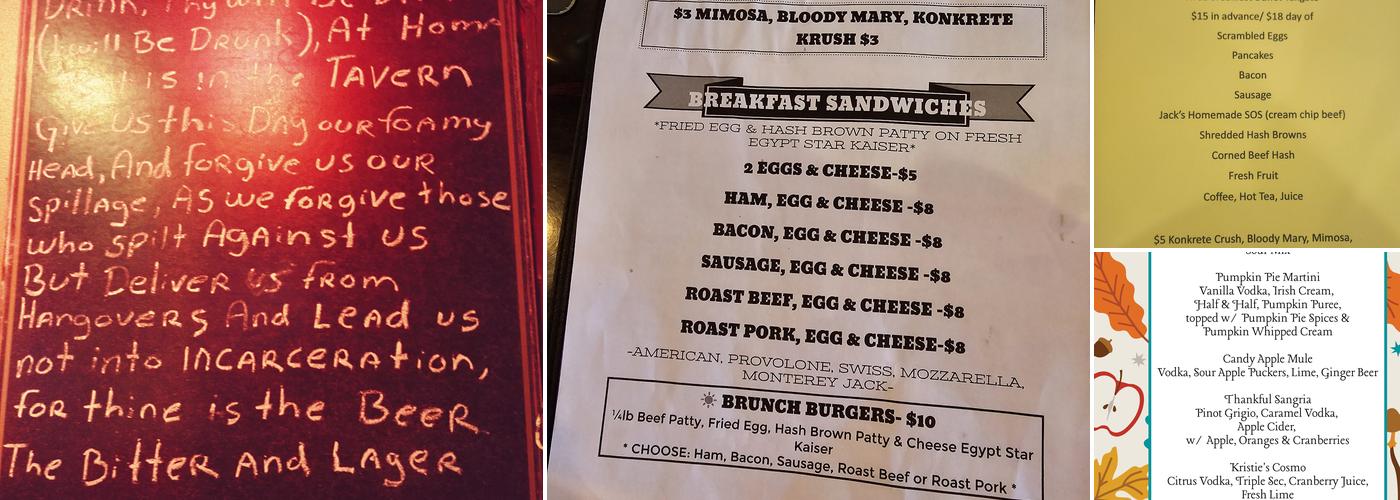 Drink, Thy will Be D
(I will Be Drunk), At Home
is in the TAVERN
Give us this Day our foamy
Head, And forgive us our
Spillage, As we forgive those
who spilt Against us
But Deliver us from
Hangovers And Lead us
not into INCARCERAtion,
for thine is the Beer
The Bitter And Lager
$3 MIMOSA, BLOODY MARY, KONKRETE
KRUSH $3
BREAKFAST SANDWICHES
*FRIED EGG & HASH BROWN PATTY ON FRESH
EGYPT STAR KAISER*
2 EGGS & CHEESE-$5
HAM, EGG & CHEESE -$8
BACON, EGG & CHEESE -$8
SAUSAGE, EGG & CHEESE -$8
ROAST BEEF, EGG & CHEESE -$8
ROAST PORK, EGG & CHEESE-$8
-AMERICAN, PROVOLONE, SWISS, MOZZARELLA,
MONTEREY JACK-
BRUNCH BURGERS- $10
¼lb Beef Patty, Fried Egg, Hash Brown Patty & Cheese Egypt Star
Kaiser
* CHOOSE: Ham, Bacon, Sausage, Roast Beef or Roast Pork *
$15 in advance/ $18 day of
Scrambled Eggs
Pancakes
Bacon
Sausage
Jack's Homemade SOS (cream chip beef)
Shredded Hash Browns
Corned Beef Hash
Fresh Fruit
Coffee, Hot Tea, Juice
$5 Konkrete Crush, Bloody Mary, Mimosa,
Sour Mix
Pumpkin Pie Martini
Vanilla Vodka, Irish Cream,
Half & Half, Pumpkin Puree,
topped w/ Pumpkin Pie Spices &
Pumpkin Whipped Cream
Candy Apple Mule
Vodka, Sour Apple Puckers, Lime, Ginger Beer
Thankful Sangria
Pinot Grigio, Caramel Vodka,
Apple Cider,
w/ Apple, Oranges & Cranberries
Kristie's Cosmo
Citrus Vodka, Triple Sec, Cranberry Juice,
Fresh Lime